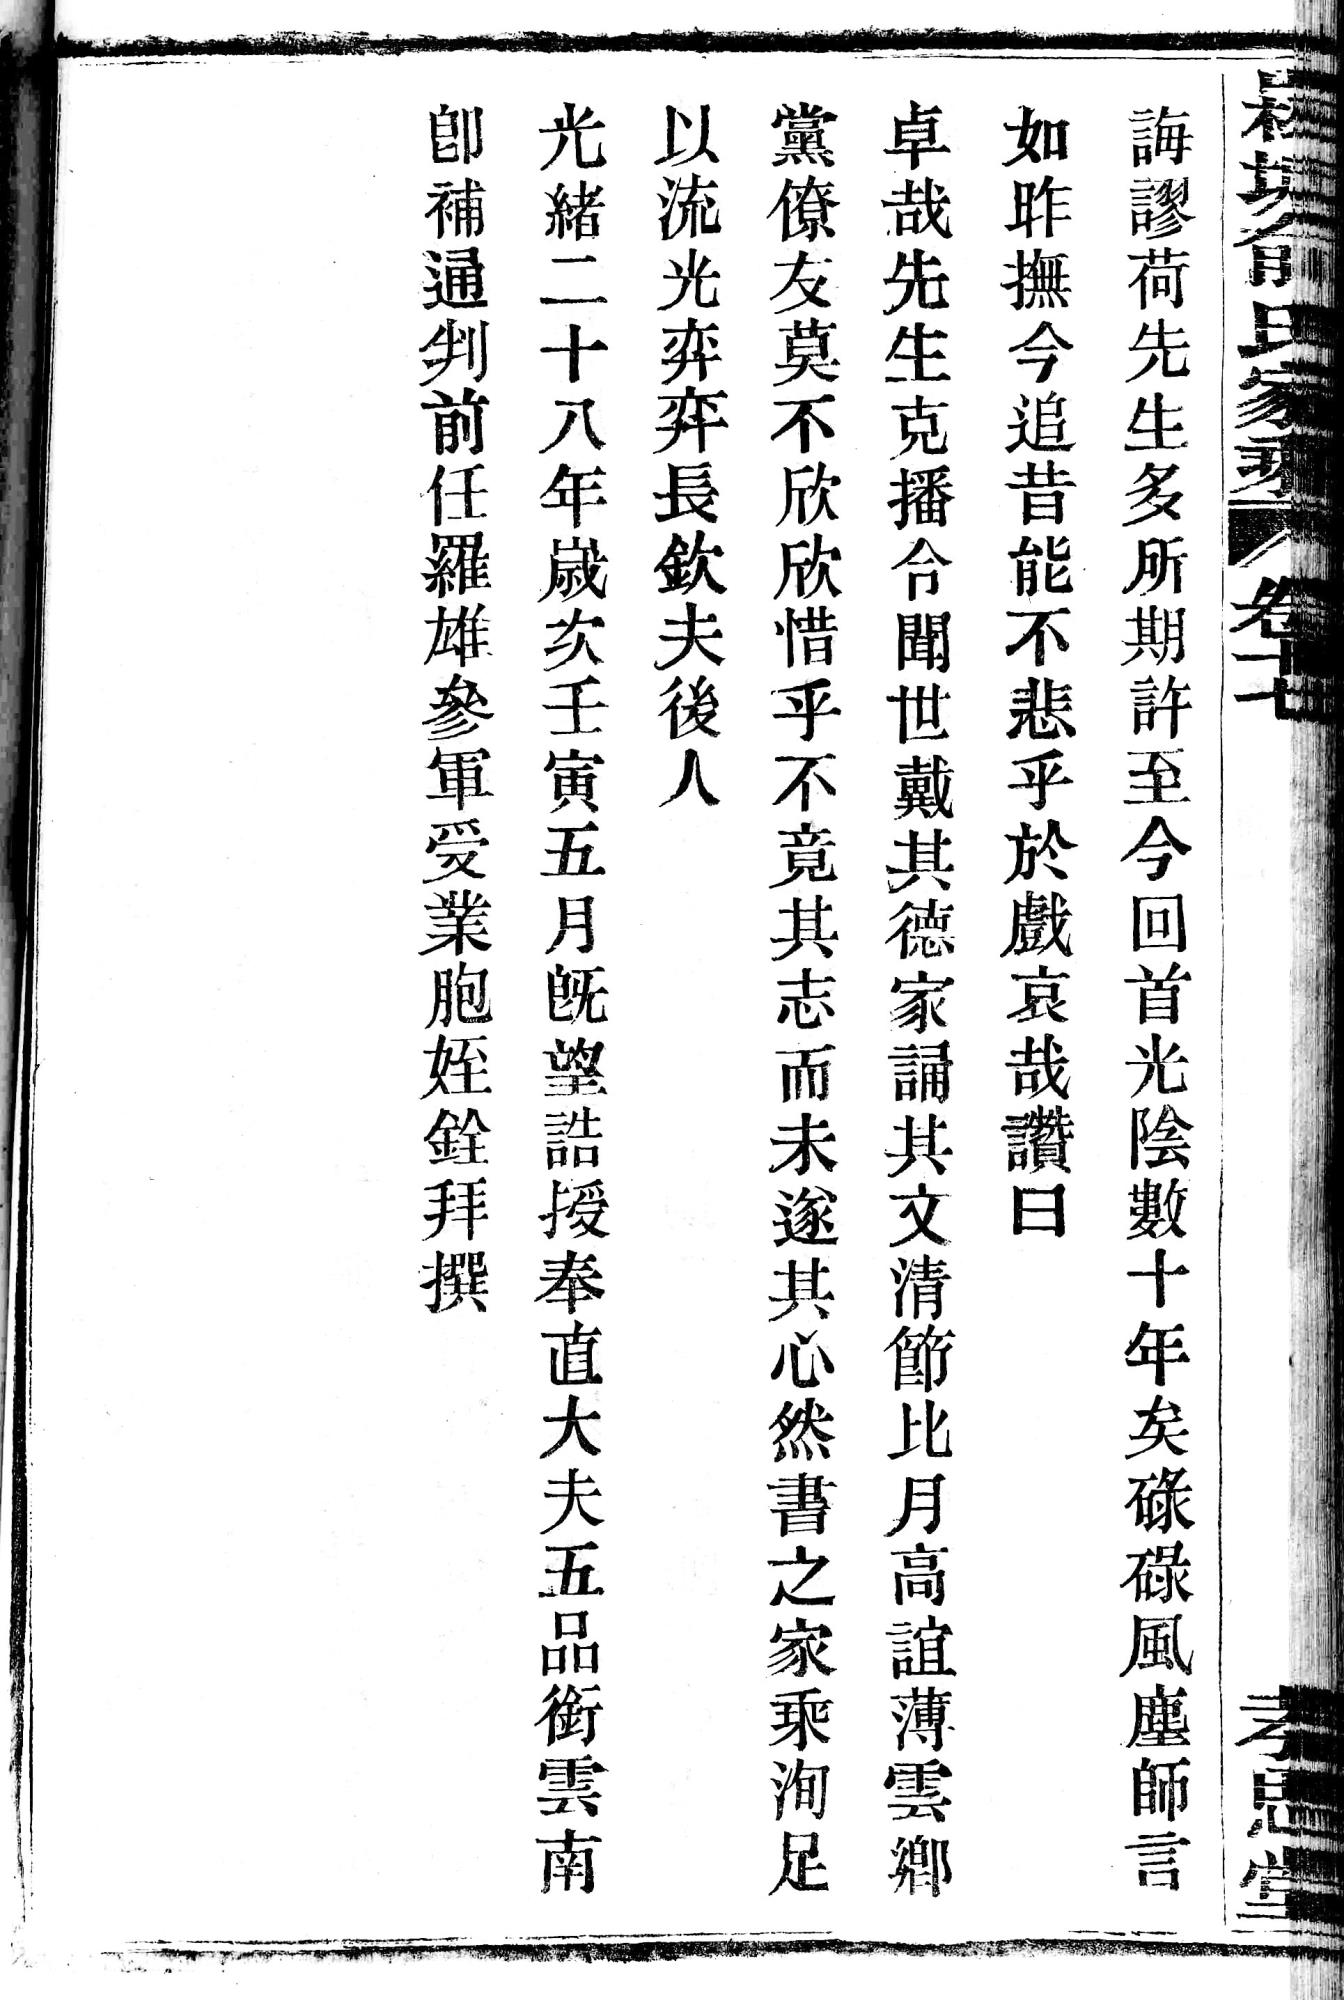 氏家乘 卷十七 孝思堂
誨謬荷先生多所期許至今回首光陰數十年矣碌碌風塵師言
如昨撫今追昔能不悲乎於戲哀哉讚曰
卓哉先生克播令聞世戴其德家誦其文清節比月高誼薄雲鄉
黨僚友莫不欣欣惜乎不竟其志而未遂其心然書之家乘洵足
以流光弈弈長欽夫後人
光緒二十八年歲次壬寅五月旣望誥授奉直大夫五品銜雲南
卽補通判前任羅雄參軍受業胞姪銓拜撰